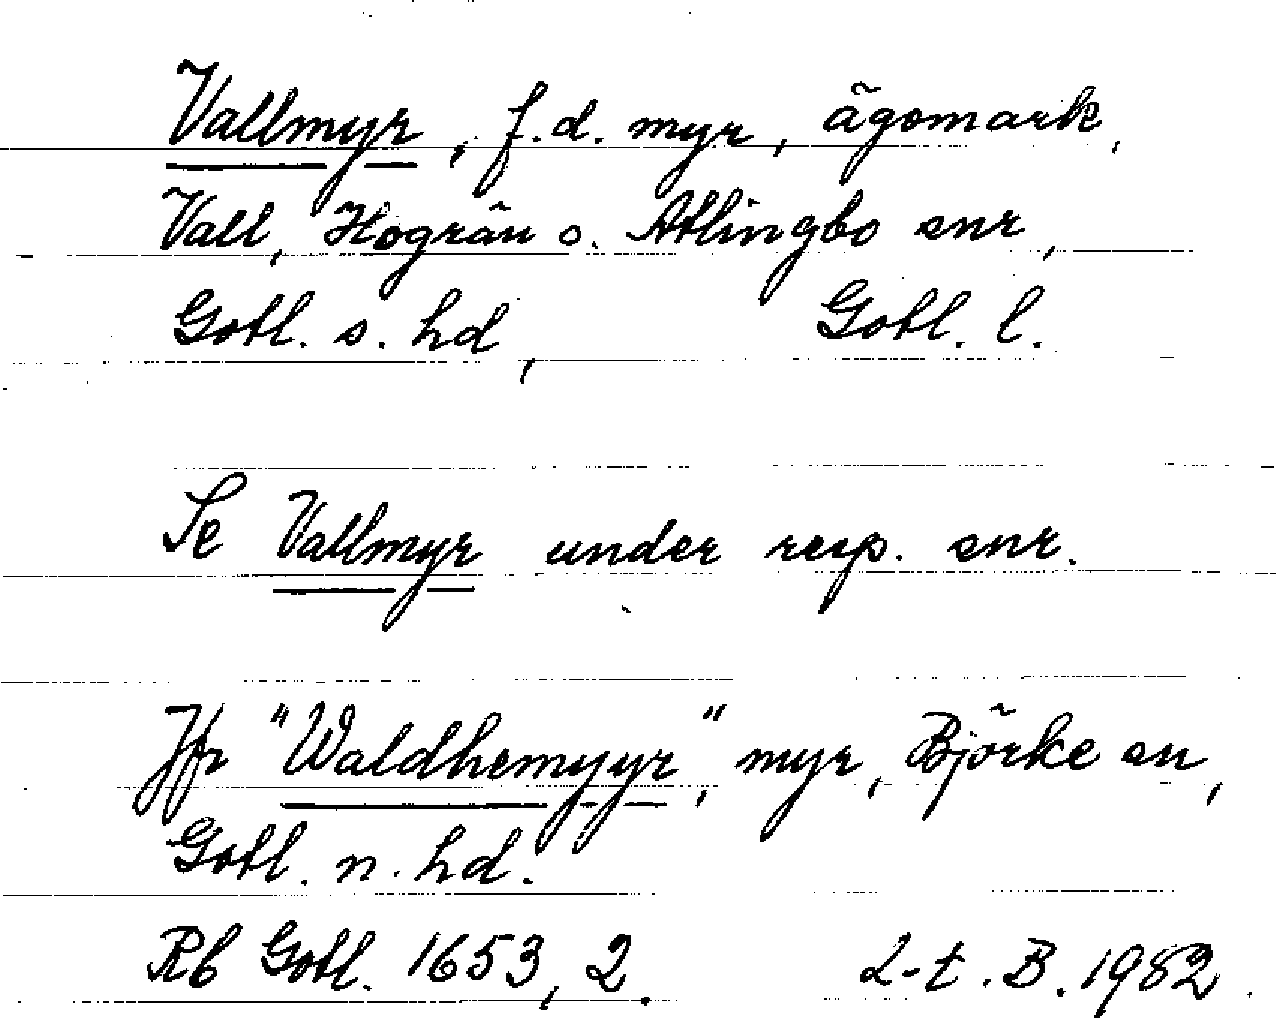 Vallmyr, f.d. myr, ägomark,
Vall, Hogrän o. Atlingbo snr,
Gotl. s. hd, Gotl. l.
Se Vallmyr under resp. snr.
Jfr "Waldhemyyr", myr, Björke sn,
Gotl. n. hd.
Rb Gotl. 1653, 2. L-t. B. 1982.